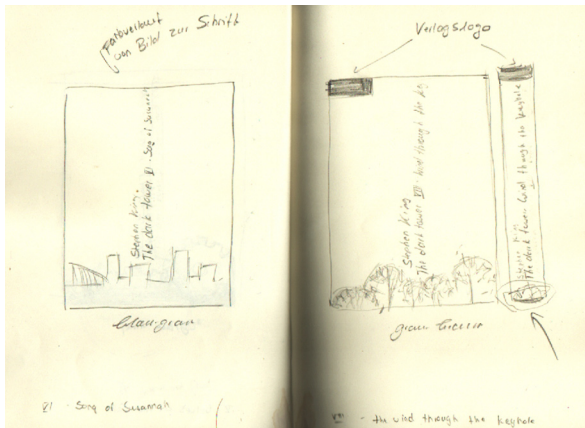 Farbverlauf
von Bild zur Schrift
Stephen King.
The dark tower VI · Song of Susannah
blau-grau
VI - Song of Susannah
Verlagslogo
Stephen King
The dark tower VIII · wind through the key
Stephen King
The dark tower wind through the keyhole
grau
VIII - the wind through the keyhole